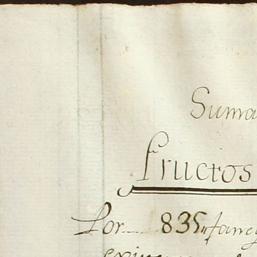 Suma
fructos
Por 835 faneg